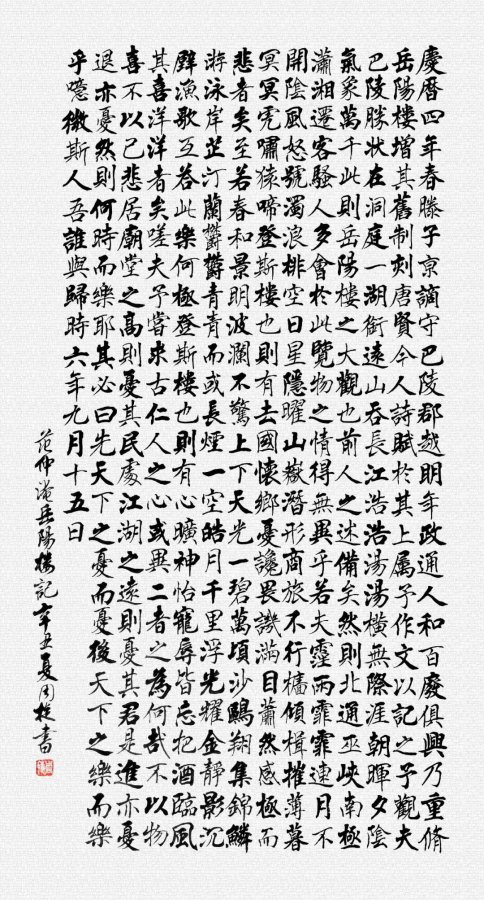 慶曆四年春滕子京謫守巴陵郡越明年政通人和百廢俱興乃重脩
岳陽樓增其舊制刻唐賢今人詩賦於其上属予作文以記之予觀夫
巴陵勝狀在洞庭一湖銜遠山吞長江浩浩湯湯橫無際涯朝暉夕陰
氣象萬千此則岳陽樓之大觀也前人之述備矣然則北通巫峽南極
瀟湘遷客騷人多會於此覽物之情得無異乎若夫霪雨霏霏連月不
開陰風怒號濁浪排空日星隱曜山嶽潛形商旅不行檣傾楫摧薄暮
冥冥虎嘯猿啼登斯樓也則有去國懷鄉憂讒畏譏滿目蕭然感極而
悲者矣至若春和景明波瀾不驚上下天光一碧萬頃沙鷗翔集錦鱗
游泳岸芷汀蘭鬱鬱青青而或長煙一空皓月千里浮光耀金靜影沉
璧漁歌互答此樂何極登斯樓也則有心曠神怡寵辱皆忘把酒臨風
其喜洋洋者矣嗟夫予嘗求古仁人之心或異二者之為何哉不以物
喜不以己悲居廟堂之高則憂其民處江湖之遠則憂其君是進亦憂
退亦憂然則何時而樂耶其必曰先天下之憂而憂後天下之樂而樂
乎噫微斯人吾誰與歸時六年九月十五日
范仲淹岳陽樓記辛丑夏周書